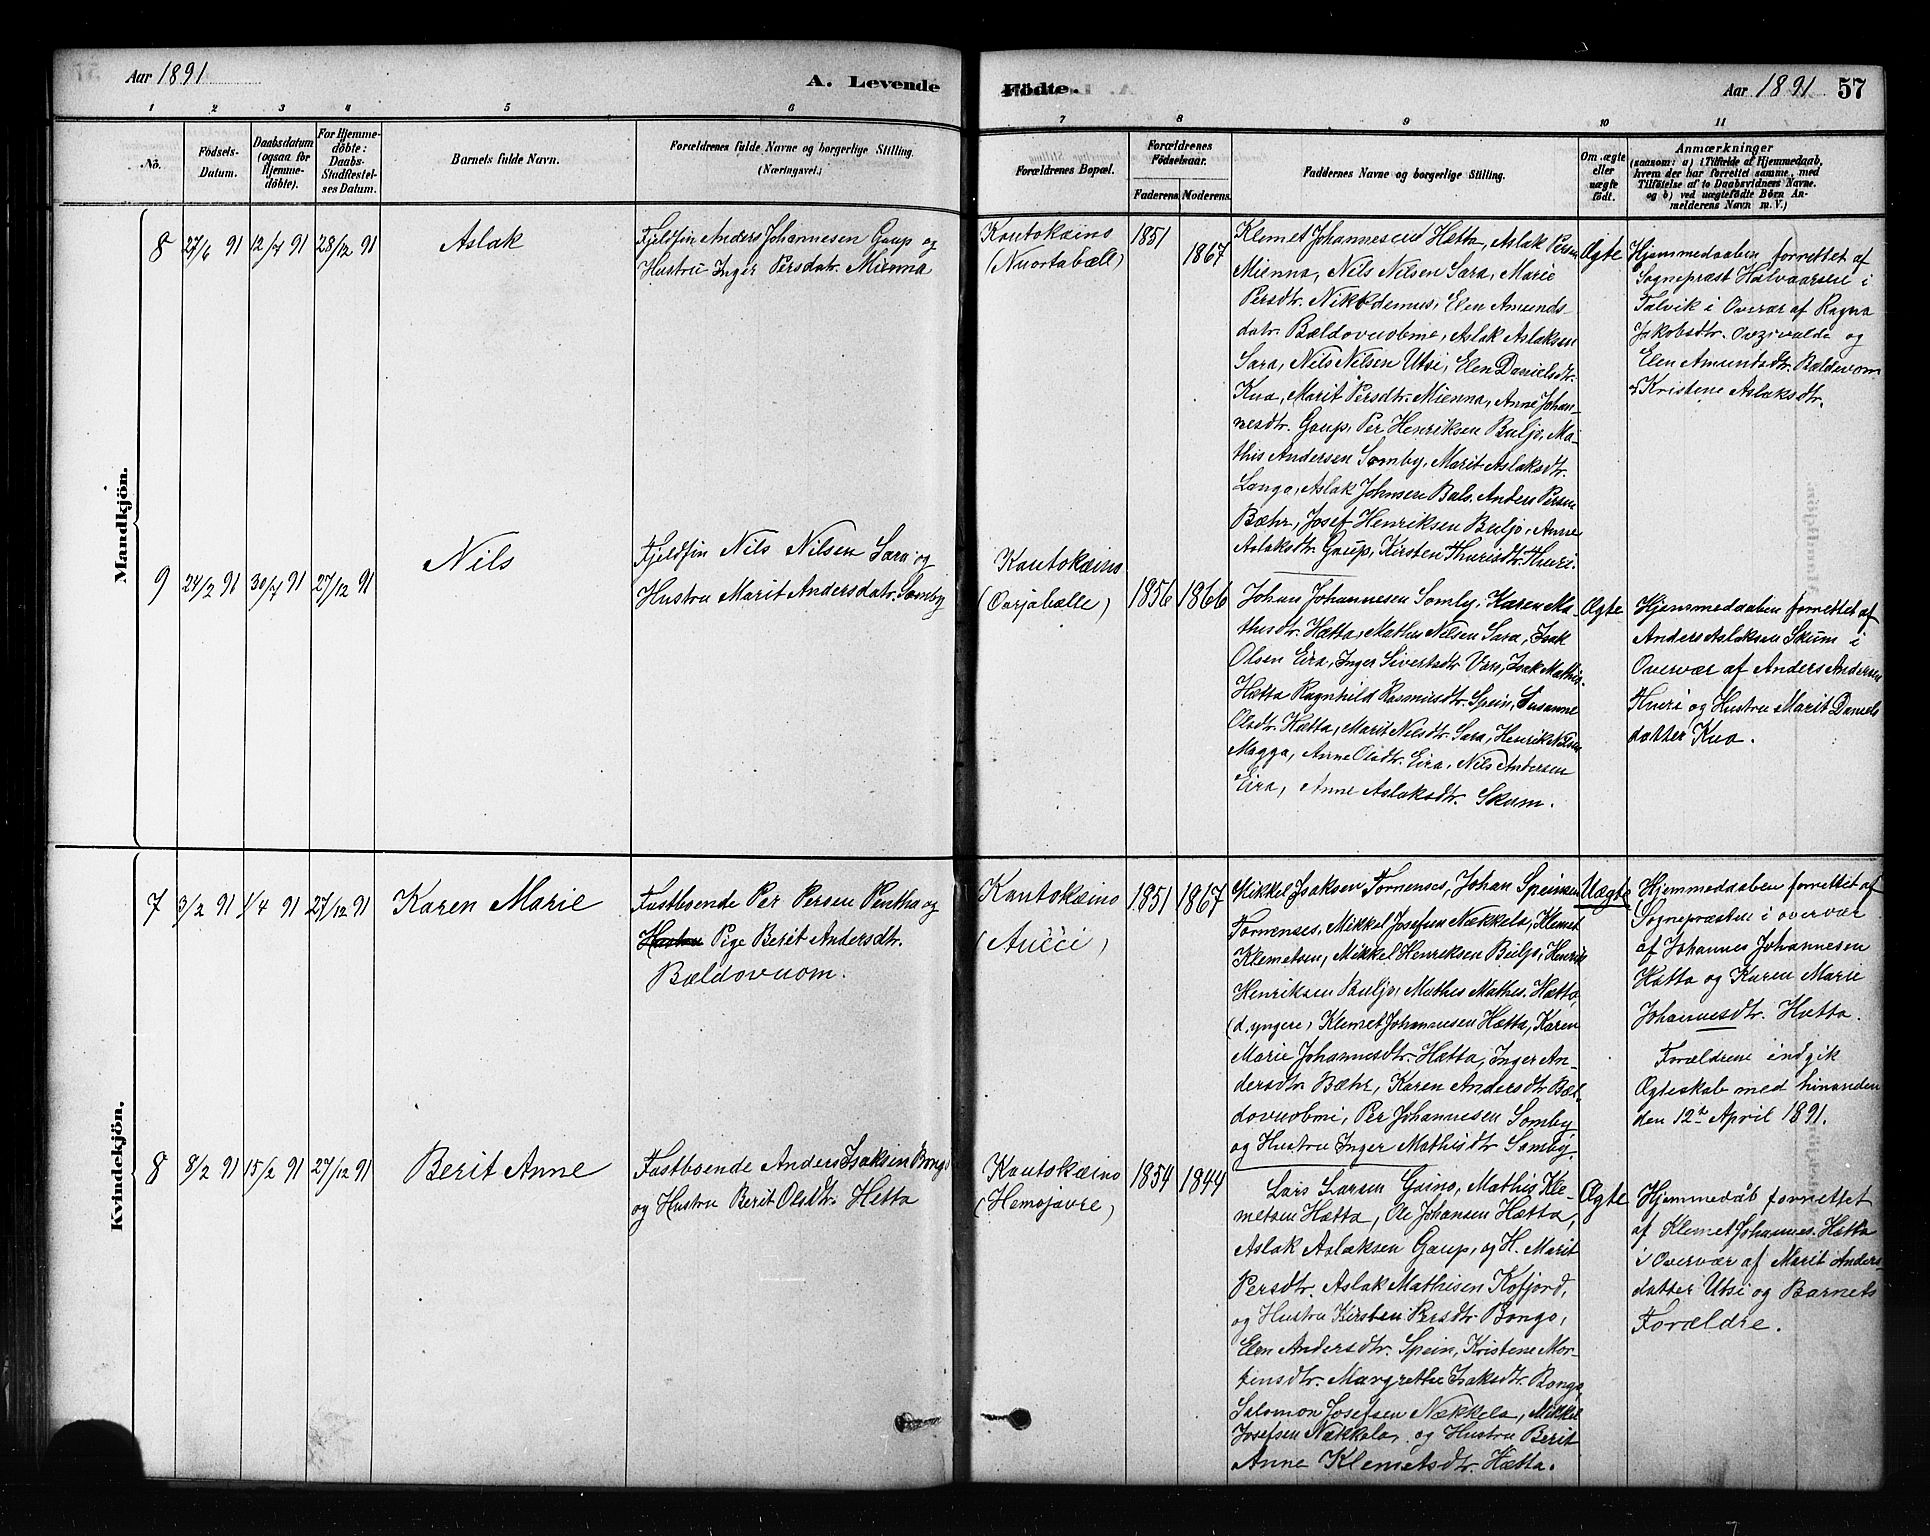 Aar 1891
A. Levende
Fødte.
Aar 1891 57
1 2 3 4 5 6 7 8 9 10 11
No.
Fødsels-
Datum.
Daabsdatum
(ogsaa for
Hjemme-
døbte).
For Hjemme-
døbte:
Daabs-
Stadfæstel-
ses Datum.
Barnets fulde Navn.
Forældrenes fulde Navne og borgerlige Stilling.
(Næringsvei.)
Forældrenes Bopæl.
Forældrenes
Fødselsaar.
Faderens. Moderens.
Faddernes Navne og borgerlige Stilling.
Om ægte
eller
uægte
født.
Anmærkninger
(saasom: a) i Tilfælde af Hjemmedaab,
hvem der har forrettet samme, med
Tilføielse af to Daabsvidners Navne.
og b) ved uægtefødte Børn An-
melderens Navn m. V.)
Mandkjön.
8 27/6 91 12/7 91 28/12 91
Aslak
Fjeldfin Anders Johannesen Gaup og
Hustru Inger Persdatr. Mienna
Kautokæino
(Nuortabælle)
1851
1867
Klemet Johannesen Hætta, Aslak Persen
Mienna, Nils Nilsen Sara, Marie
Persdtr. Nikkdemus, Elen Amunds-
datr. Bældovuobme, Aslak Aslaksen
Sara, Nils Nilsen Utsi, Elen Danielsdtr.
Kua, Marit Persdtr. Mienna, Anne Johan-
nesdtr. Gaup, Per Henriksen Buljo, Ma-
this Andersen Somby, Marit Aslaksdtr.
Lango, Aslak Johnsen Bals. Anders Persen
Bæhr, Josef Henriksen Buljo, Anne
Aslaksdtr. Gaup, Kirsten Thurisdtr. Thuri.
Ægte
Hjemmedaaben forrettet af
Sognepræst Halvaarsen i
Talvik i Overvær af Ragna
Jakobsdtr. og
Elen Amundsdtr. Bældovuom
& Kristene Aslaksdtr.
9 24/2 91 30/7 91 27/12 91
Nils
Fjeldfin Nils Nilsen Sara og
Hustru Marit Andersdatr. Somby
Kautokæino
(Oarjabælle)
1856 1866
Johans Johannesen Somby, Karen Ma-
thisdtr. Hætta, Mathis Nilsen Sara, Isak
Olsen Eira, Inger Sivertsdtr Vars, Isak Mathis-
Hætta Ragnhild Rasmusdtr. Spein, Susanne
Olsdtr. Hætta, Marit Nilsdtr. Sara, Henrik Nilsen
Magga, Anne Olsdtr. Eira, Nils Andersen
Eira, Anne Aslaksdtr. Skum.
Ægte
Hjemmedaaben forrettet af
Anders Aslaksen Skum i
Overvær af Anders Andersen
Thuri og Hustru Marit Daniels
datter Kua.
Kvindekjön.
7 3/2 91 1/4 91 27/12 91
Karen Marie
Fastboende Per Persen Pentha og
Hustru Pige Berit Andersdtr.
Bældovuom.
Kautokæino
(Aucci)
1851 1867
Mikkel Isaksen Tornenses, Johan Speinsen
Tornenses, Mikkel Josefsen Nækkela, Klemet
Klemetsen, Mikkel Henriksen Buljo, Henrik
Henriksen Buljo, Mathis Mathis. Hætta,
(d. yngere, Klemet Johannesen Hætta, Karen
Marie Johannesdtr. Hætta, Inger An-
dersdtr. Bæhr, Karen Andersdtr Bæl-
dovuobmi, Per Johannesen Somby
og Hustru Inger Mathisdtr Somby.
Uægte
Hjemmedaaben forrettet af
Sognepræsten i overvær
af Johannes Johannesen
Hætta og Karen Marie
Johannesdtr. Hætta.
Forældrene indgik
Ægteskab med hinanden
den 12te April 1891.
8 8/2 91 15/2 91 27/12 91
Berit Anne
Fastboende Anders Isaksen Bongo
og Hustru Berit Olsdtr. Hetta
Kautokæino
(Hemojavre)
1854 1844
Lars Larsen Gaino, Mathis Kle-
metsen Hætta, Ole Johansen Hætta,
Aslak Aslaksen Gaup, og H. Marit
Persdtr. Aslak Mathisen Kofjord,
og Hustru Kirsten Persdtr Bongo,
Elen Andersdtr. Spein, Kristene Mor-
tensdtr. Margrethe Isaksdtr. Bongo,
Salomon Josefsen Nækkela, Mikkel
Josefsen Nækkala, og Hustru Berit
Anne Klemetsdtr. Hætta.
Ægte
Hjemmedåb forrettet
af Klemet Johannes. Hætta
i Overvær af Marit Anders-
datter Utsi og Barnets
Forældre.